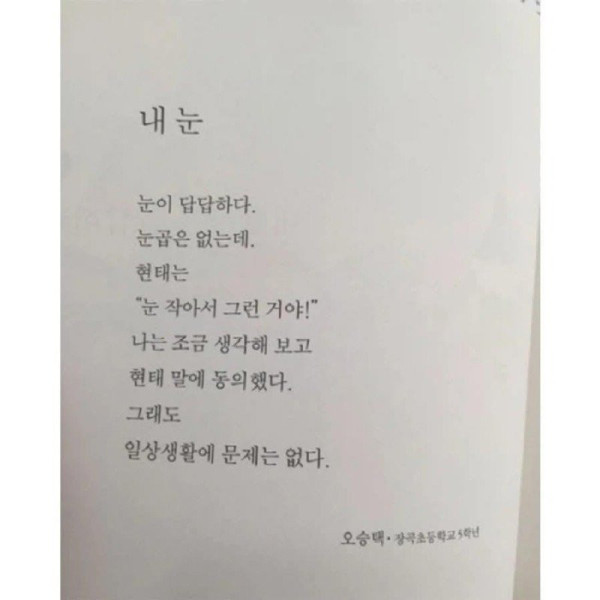 내 눈
눈이 답답하다.
눈곱은 없는데.
현태는
"눈 작아서 그런 거야!"
나는 조금 생각해 보고
현태 말에 동의했다.
그래도
일상생활에 문제는 없다.
오승택 · 장곡초등학교 5학년